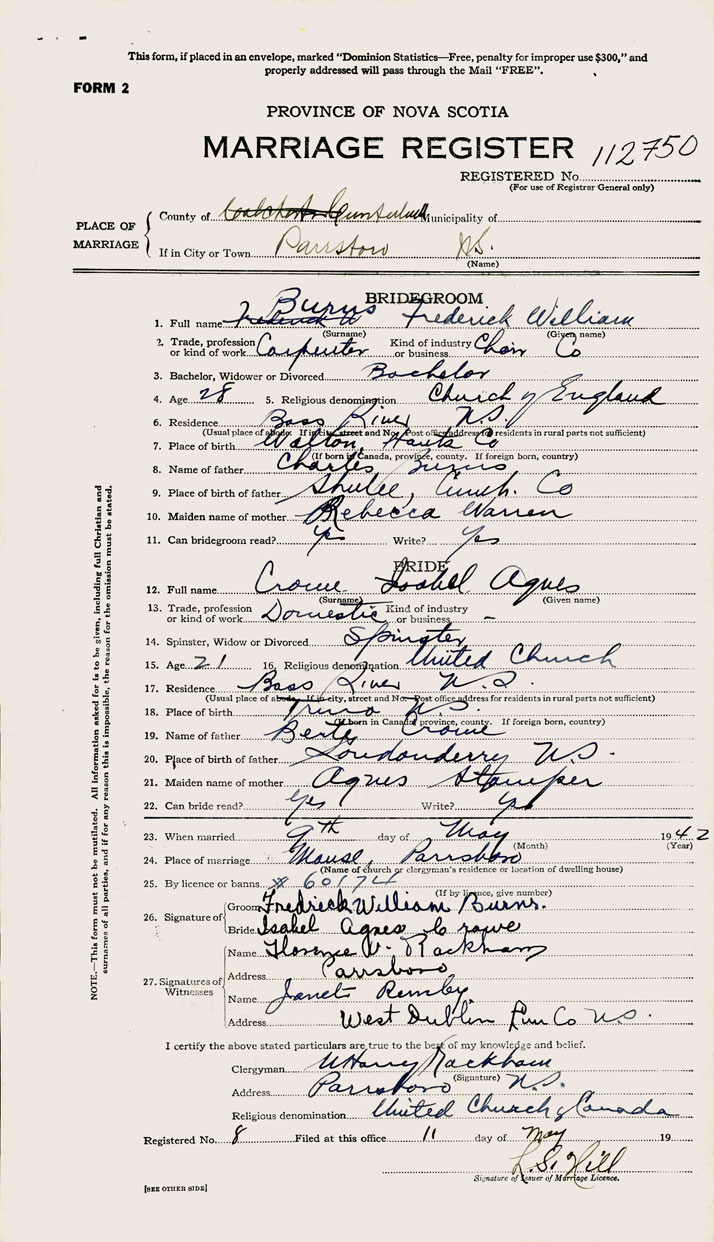 This form, if placed in an envelope, marked "Dominion Statistics—Free, penalty for improper use $300," and
properly addressed will pass through the Mail "FREE".
FORM 2
PROVINCE OF NOVA SCOTIA
MARRIAGE REGISTER 112750
REGISTERED No.
(For use of Registrar General only)
PLACE OF MARRIAGE
County of Colchester Cumberland Municipality of
If in City or Town Parrsboro N.S.
(Name)
BRIDEGROOM
1. Full name Frederick W Burns Frederick William
(Surname) (Given name)
2. Trade, profession or kind of work Carpenter Kind of industry or business Chair Co
3. Bachelor, Widower or Divorced Bachelor
4. Age 28 5. Religious denomination Church of England
6. Residence Bass River N.S.
(Usual place of abode. If in city, street and No. Post office address for residents in rural parts not sufficient)
7. Place of birth Walton, Hants Co
(If born in Canada, province, county. If foreign born, country)
8. Name of father Charles Burns
9. Place of birth of father Shulee, Cumb. Co
10. Maiden name of mother Rebecca Warren
11. Can bridegroom read? yes Write? yes
BRIDE
12. Full name Crowe Isabel Agnes
(Surname) (Given name)
13. Trade, profession or kind of work Domestic Kind of industry or business –
14. Spinster, Widow or Divorced Spinster
15. Age 21 16. Religious denomination United Church
17. Residence Bass River N.S.
(Usual place of abode. If in city, street and No. Post office address for residents in rural parts not sufficient)
18. Place of birth Truro N.S.
(If born in Canada, province, county. If foreign born, country)
19. Name of father Crowe
20. Place of birth of father Londonderry N.S.
21. Maiden name of mother Agnes Stamper
22. Can bride read? yes Write? yes
23. When married 9th day of May 1942
(Month) (Year)
24. Place of marriage Manse, Parrsboro
(Name of church or clergyman's residence or location of dwelling house)
25. By licence or banns # 60174
(If by licence, give number)
26. Signature of
Groom Fredrick William Burns.
Bride Isabel Agnes Crowe
27. Signatures of Witnesses
Name Florence V. Rackham
Address Parrsboro
Name Janet
Address West Dublin Lun Co N.S.
I certify the above stated particulars are true to the best of my knowledge and belief.
Clergyman W Harry Rackham
(Signature)
Address Parrsboro N.S.
Religious denomination United Church of Canada
Registered No. 8 Filed at this office 11 day of May 19
L.S. Hill
Signature of Issuer of Marriage Licence.
[SEE OTHER SIDE]
NOTE.—This form must not be mutilated. All information asked for is to be given, including full Christian and
surnames of all parties, and if for any reason this is impossible, the reason for the omission must be stated.